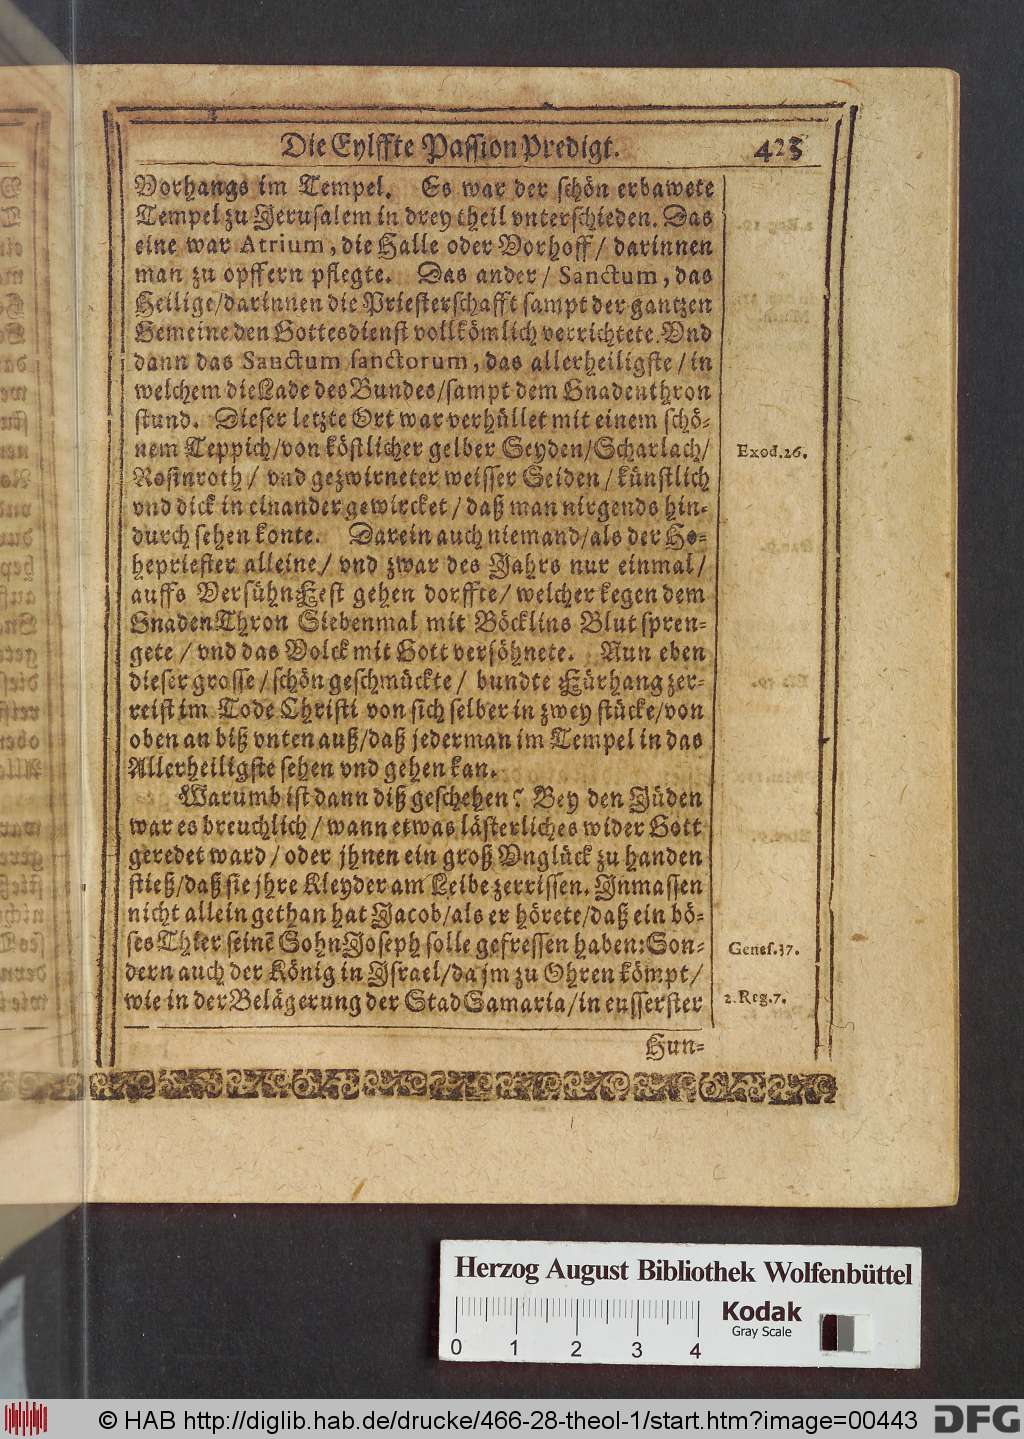 Die Eylffte Passion Predigt. 425
Vorhangs im Tempel. Es war der schön erbawete
Tempel zu Jerusalem in drey theil vnterschieden. Das
eine war Atrium, die Halle oder Vorhoff/ darinnen
man zu opffern pflegte. Das ander/ Sanctum, das
Heilige/darinnen die Priesterschafft sampt der gantzen
Gemeine den Gottesdienst vollkömlich verrichtete. Vnd
dann das Sanctum sanctorum, das allerheiligste/in
welchem die Lade des Bundes/sampt dem Gnadenthron
stund. Dieser letzte Ort war verhüllet mit einem schö-
nem Teppich/von köstlicher gelber Seyden/Scharlach/
Exod.26.
Rosinroth/ vnd gezwirneter weisser Seiden/künstlich
vnd dick in einander gewircket/daß man nirgends hin-
durch sehen konte. Darein auch niemand/als der Ho-
hepriester alleine/ vnd zwar des Jahrs nur einmal/
auffs VersühnFest gehen dorffte/welcher kegen dem
GnadenThron Siebenmal mit Böcklins Blut spren-
gete/vnd das Volck mit Gott versöhnete. Nun eben
dieser grosse/schön geschmückte/ bundte Fürhang zer-
reist im Tode Christi von sich selber in zwey stücke/von
oben an biß vnten auß/daß jederman im Tempel in das
Allerheiligste sehen vnd gehen kan.
Warumb ist dann diß geschehen? Bey den Jüden
war es breuchlich/wann etwas lästerliches wider Gott
geredet ward/oder jhnen ein groß Vnglück zu handen
stieß/daß sie jhre Kleyder am Leibe zerrissen. Jnmassen
nicht allein gethan hat Jacob/als er hörete/daß ein bö-
ses Thier seinē Sohn Joseph solle gefressen haben: Son-
Genes.37.
dern auch der König in Jsrael/da jm zu Ohren kömpt/
wie in der Belägerung der Stad Samaria/in eusserster
2.Reg.7.
Hun-
Herzog August Bibliothek Wolfenbüttel
0 1 2 3 4
Kodak
Gray Scale
© HAB http://diglib.hab.de/drucke/466-28-theol-1/start.htm?image=00443
DFG